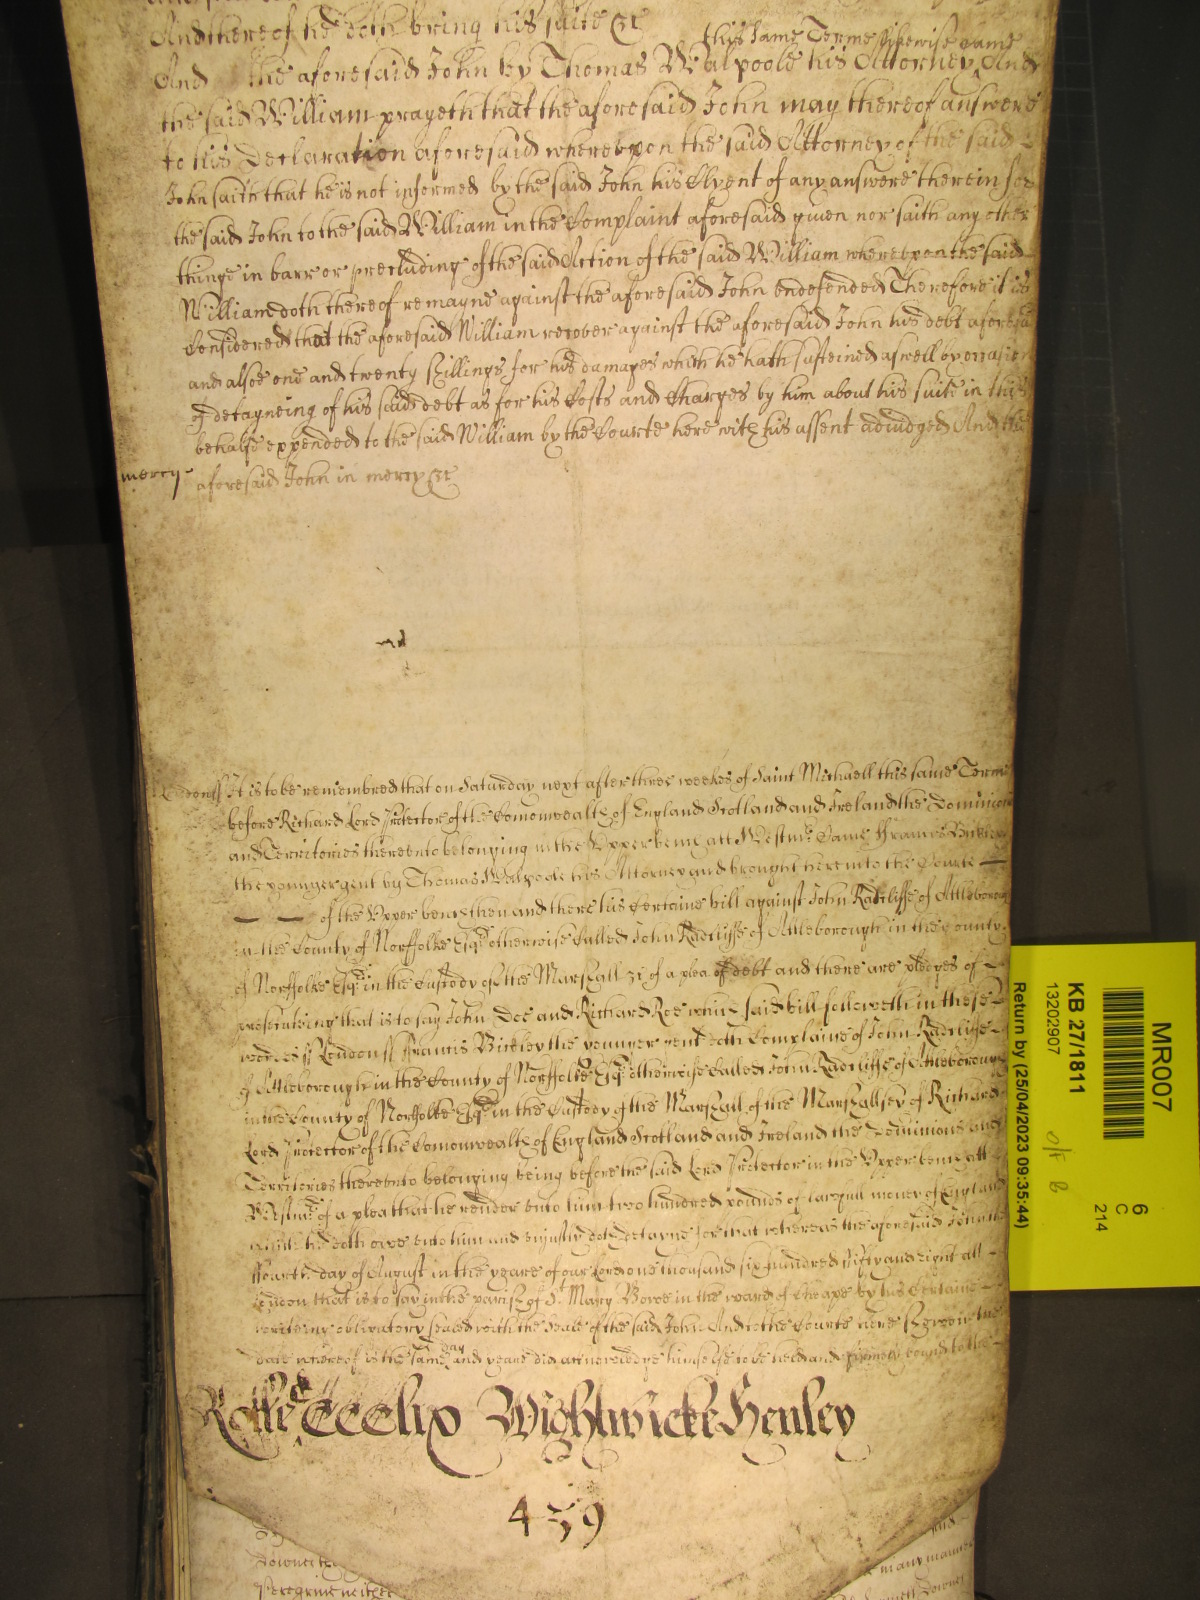 And thereof he doth bring his suite &c
this same Terme likewise came
And the aforesaid John by Thomas Walpoole his Attorney And
the said William prayeth that the aforesaid John may thereof answere
to his Declaration aforesaid whereupon the said Attorney of the said
John saith that he is not informed by the said John his Clyent of any answere therein for
the said John to the said William in the Complaint aforesaid given nor saith any other
thinge in barr or precluding of the said Action of the said William whereupon the said
William doth thereof remayne against the aforesaid John undefended Therefore it is
Considered that the aforesaid William recover against the aforesaid John his debt aforesaid
and alsoe one and twenty shillings for his damages which he hath susteined aswell by occasion
of detayneing of his said debt as for his Costs and Charges by him about his suite in this
behalfe expended to the said William by the Courte here with his assent adiudged And the
mercy aforesaid John in mercy &c
London ss It is to be remembred that on Saturday next after three weekes of Saint Michaell this same Terme
before Richard Lord Protector of the Comonwealth of England Scotland and Ireland the Dominions
and Territories thereunto belonging in the Upper bench att Westmr Came Francis Bickley
the younger gent by Thomas Walpoole his Attorney and brought here into the Courte
of the Upper bench then and there his Certaine bill against John Radcliffe of Attleborough
in the County of Norffolke Esqr otherwise Called John Radcliffe of Attleborough in the County
of Norffolke Esqr in the Custody of the Marshall &c of a plea of debt and there are pledges of
prosecuting that is to say John Doe and Richard Roe which said bill followeth in these
words ss London ss Francis Bickley the younger gent doth Complaine of John Radcliffe
of Attleborough in the County of Norffolke Esqr otherwise Called John Radcliffe of Attleborough
in the County of Norffolke Esqr in the Custody of the Marshall of the Marshallsey of Richard
Lord Protector of the Comonwealth of England Scotland and Ireland the Dominions and
Territories thereunto belonging being before the said Lord Protector in the Upper bench att
Westmr of a plea that he render unto him two hundred pounds of lawfull money of England
which he doth owe unto him and uniustly doth detayne for that whereas the aforesaid John the
ffourth day of August in the yeare of our Lord one thousand six hundred fifty and eight att
London that is to say in the parish of St Mary Bowe in the ward of Cheape by his Certaine
writeing obligatory sealed with the Seale of the said John And to the Courte here shewen the
date whereof is the same day and yeare did acknowledge himselfe to be held and firmely bound to the
Rolle CCCClix Wightwicke Henley
459
and
many
Peregrine neither
MR007
KB 27/1811
13202907
Return by (25/04/2023 09:35:44)
6
C
214